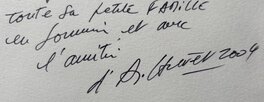 toute sa petite FAMILLE
en souvenir et avec
l'amitié
d'A. 2004